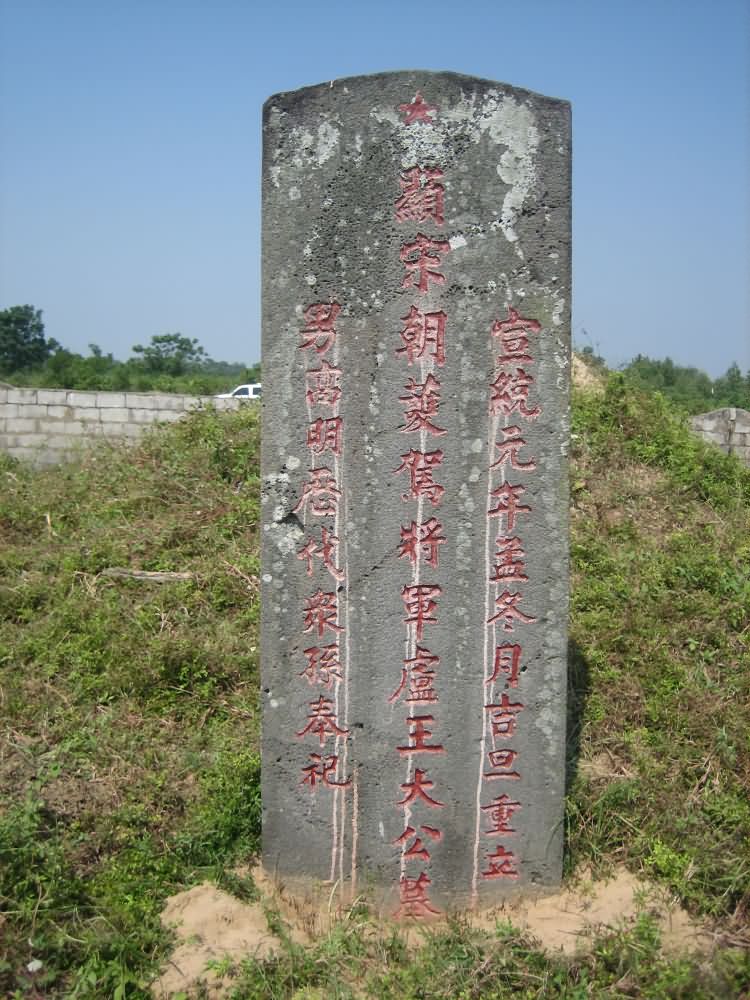 宣統元年孟冬月吉旦重立
顯宋朝駕將軍盧王大公墓
男高明厯代衆孫奉祀